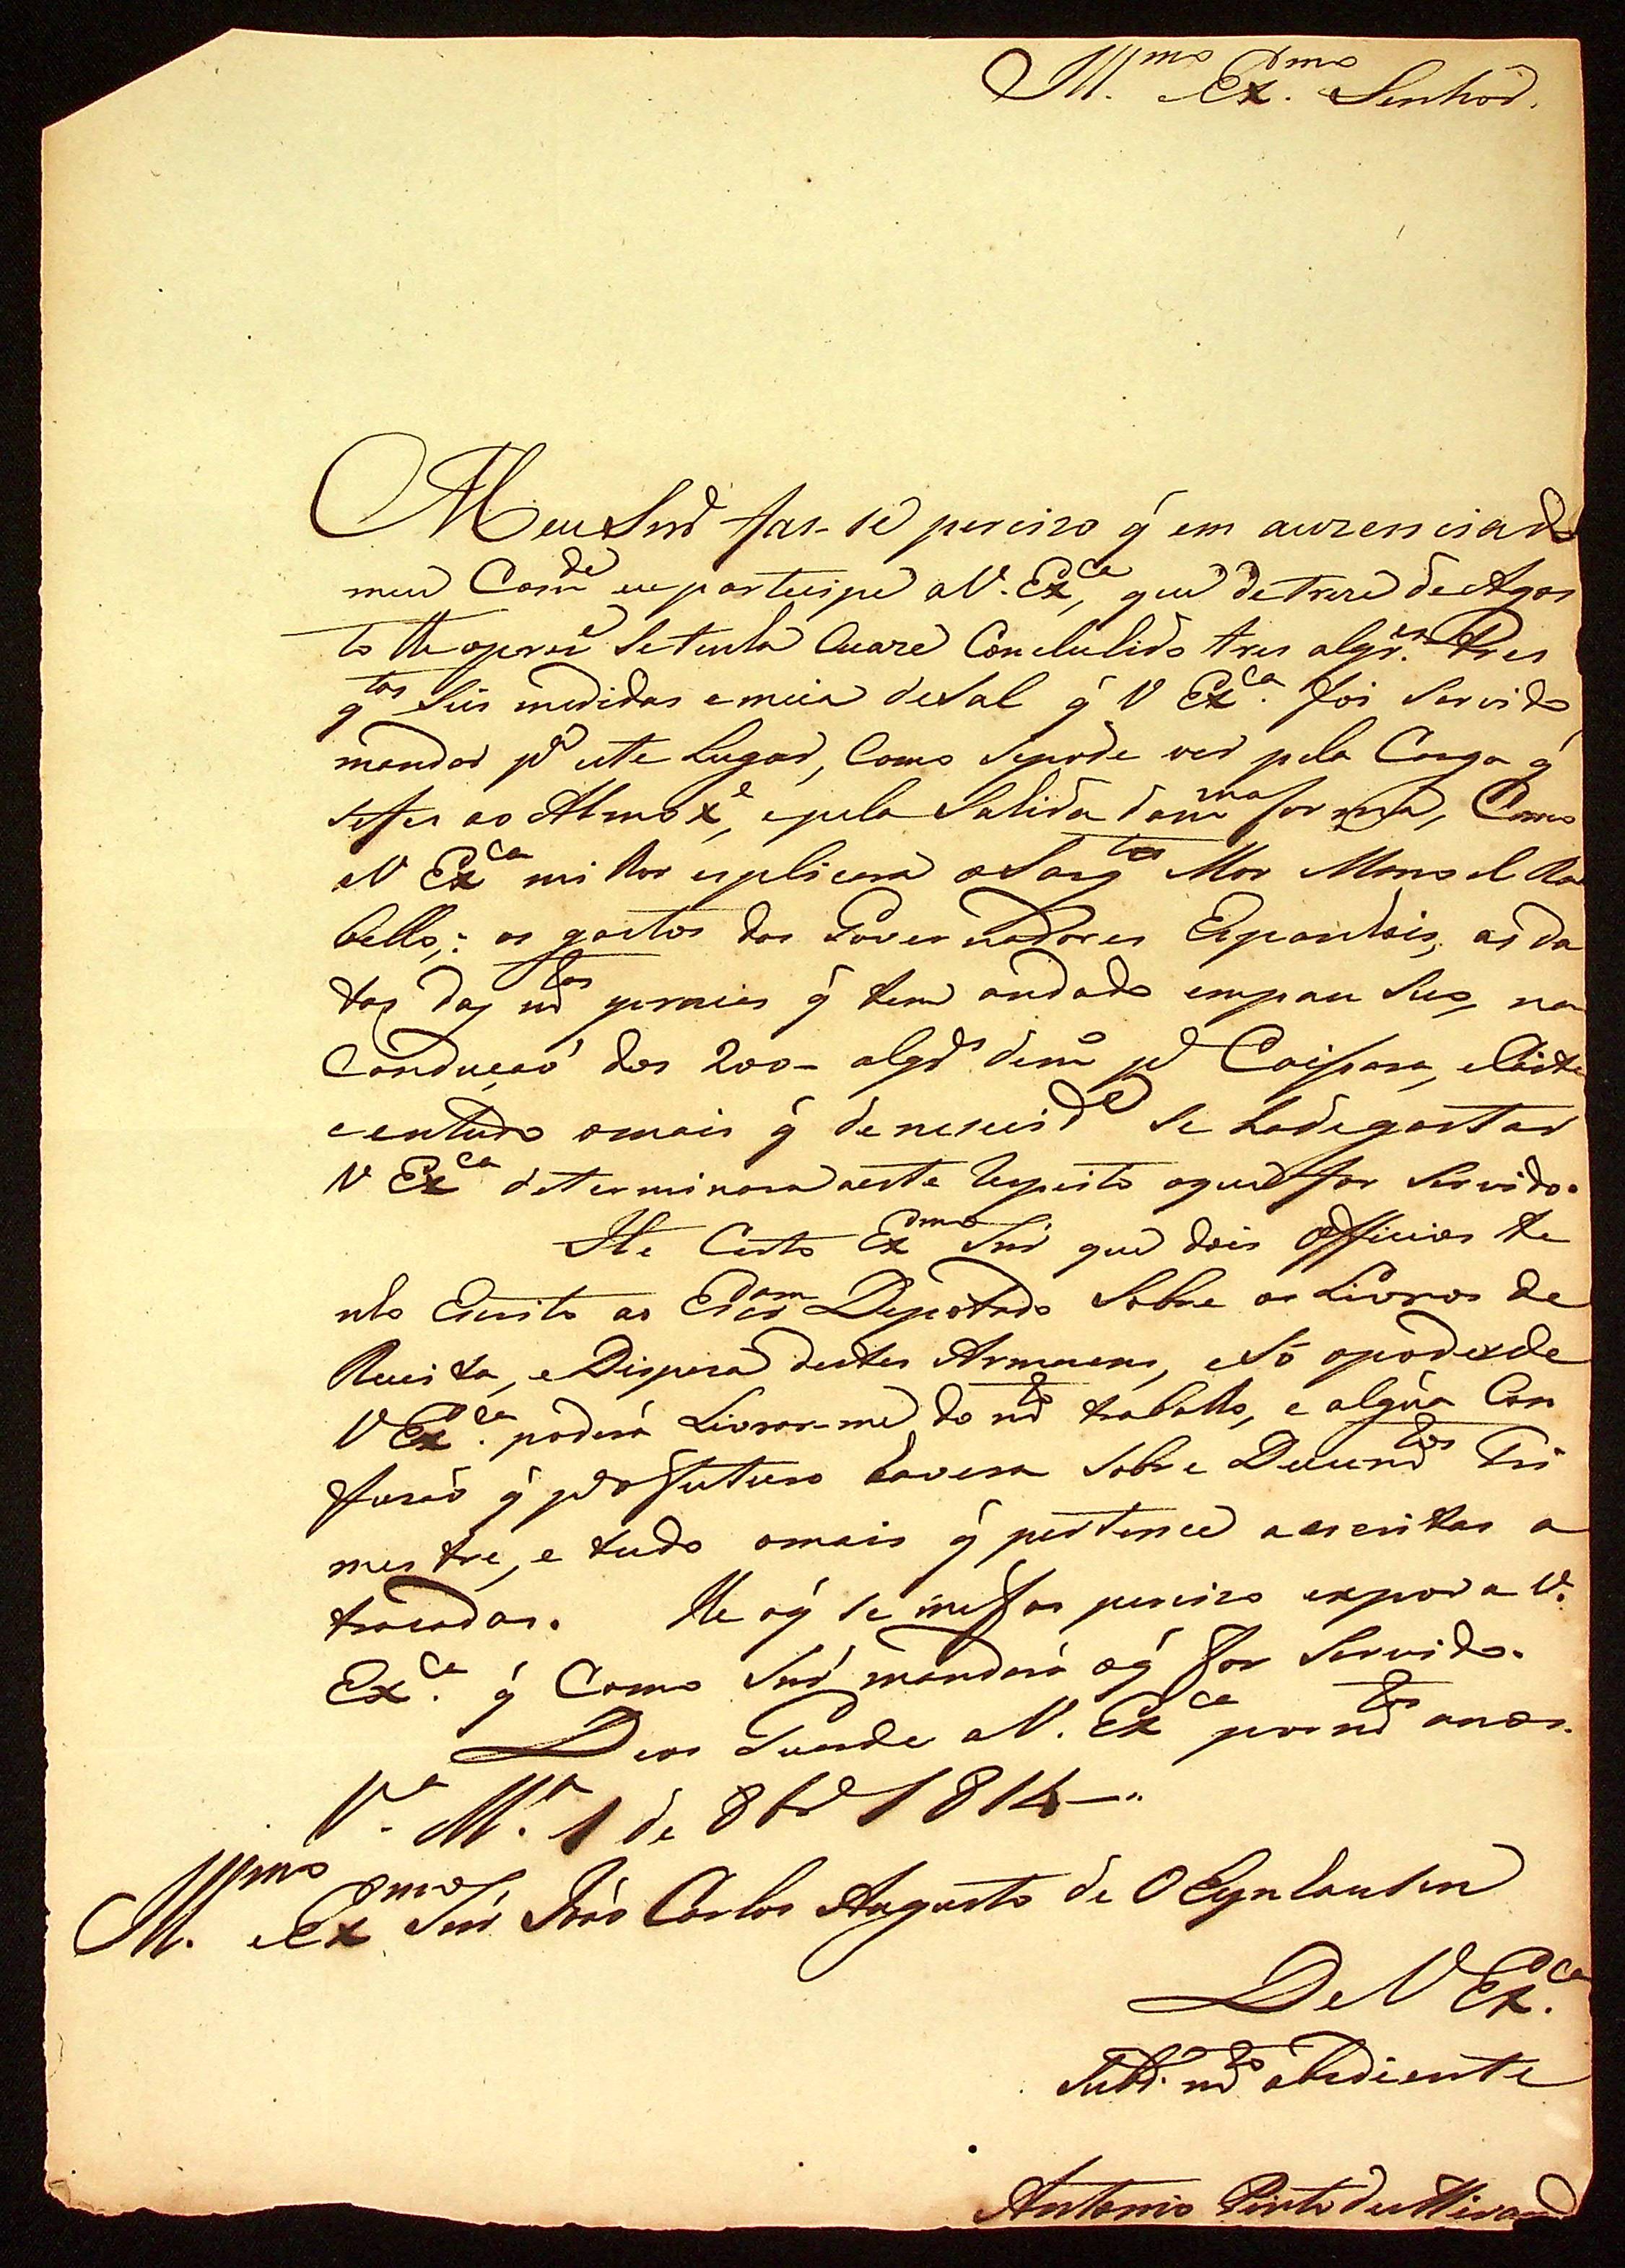 Ill.mo Ex.mo Senhor.
Meu Snr faz-se percizo q̃ em auzencia do
meu Com.de eu participe a V. Ex.ca, que de treze de Agos
to the oprez.e Setenta Quaze Concluhido tres alqr.es tres
q.tas Seis medidas e meia de Sal q̃ V Ex.ca foi Servido
mandar p.a este Lugar, Como sepode ver pela Carga q̃
sefes ao Almox.e, epela Sahida dam.ma forma, Como
V Ex.ca milhor esplicara o Sarg.to Mor Manoel Ra
bello; os gastos dos Governadores Espanhois, as da
tas das m.tas q̃ tem andado em na
Conducçaó dos 200 alqr.s dem.mo p.a
e entudo omais q̃ de neseçid.e se hadegastar
V Ex.ca determinara aeste Respeito oque for Servido.
He Certo Ex.mo Snr que dois Officios te
nho Escrito ao Escr.am Deputado Sobre os Livros de
Receita, e Dispeza destes Armazens, e Só opoder de
V Ex.ca poderá Livrar-me do m.to trabalho, e algúa Con
fuzaó q̃ p.a o futuro havera Sobre Docum.tos Tri
mestre, e tudo omais q̃ pertence a escritas a
trazadas. He oq̃ se mefas percizo expor a V.
Ex.ca q̃ Como Snr mandará oq̃ for Servido.
Deos Guarde a V. Ex.ca por m.tos anos.
V.a M.a 1 de 8br.o 1814
Ill.mo e Ex.mo Snr Joaó Carlos Augusto de OEynhausen
De V Ex.ca
Subd. m.to obediente
Antonio Pinto